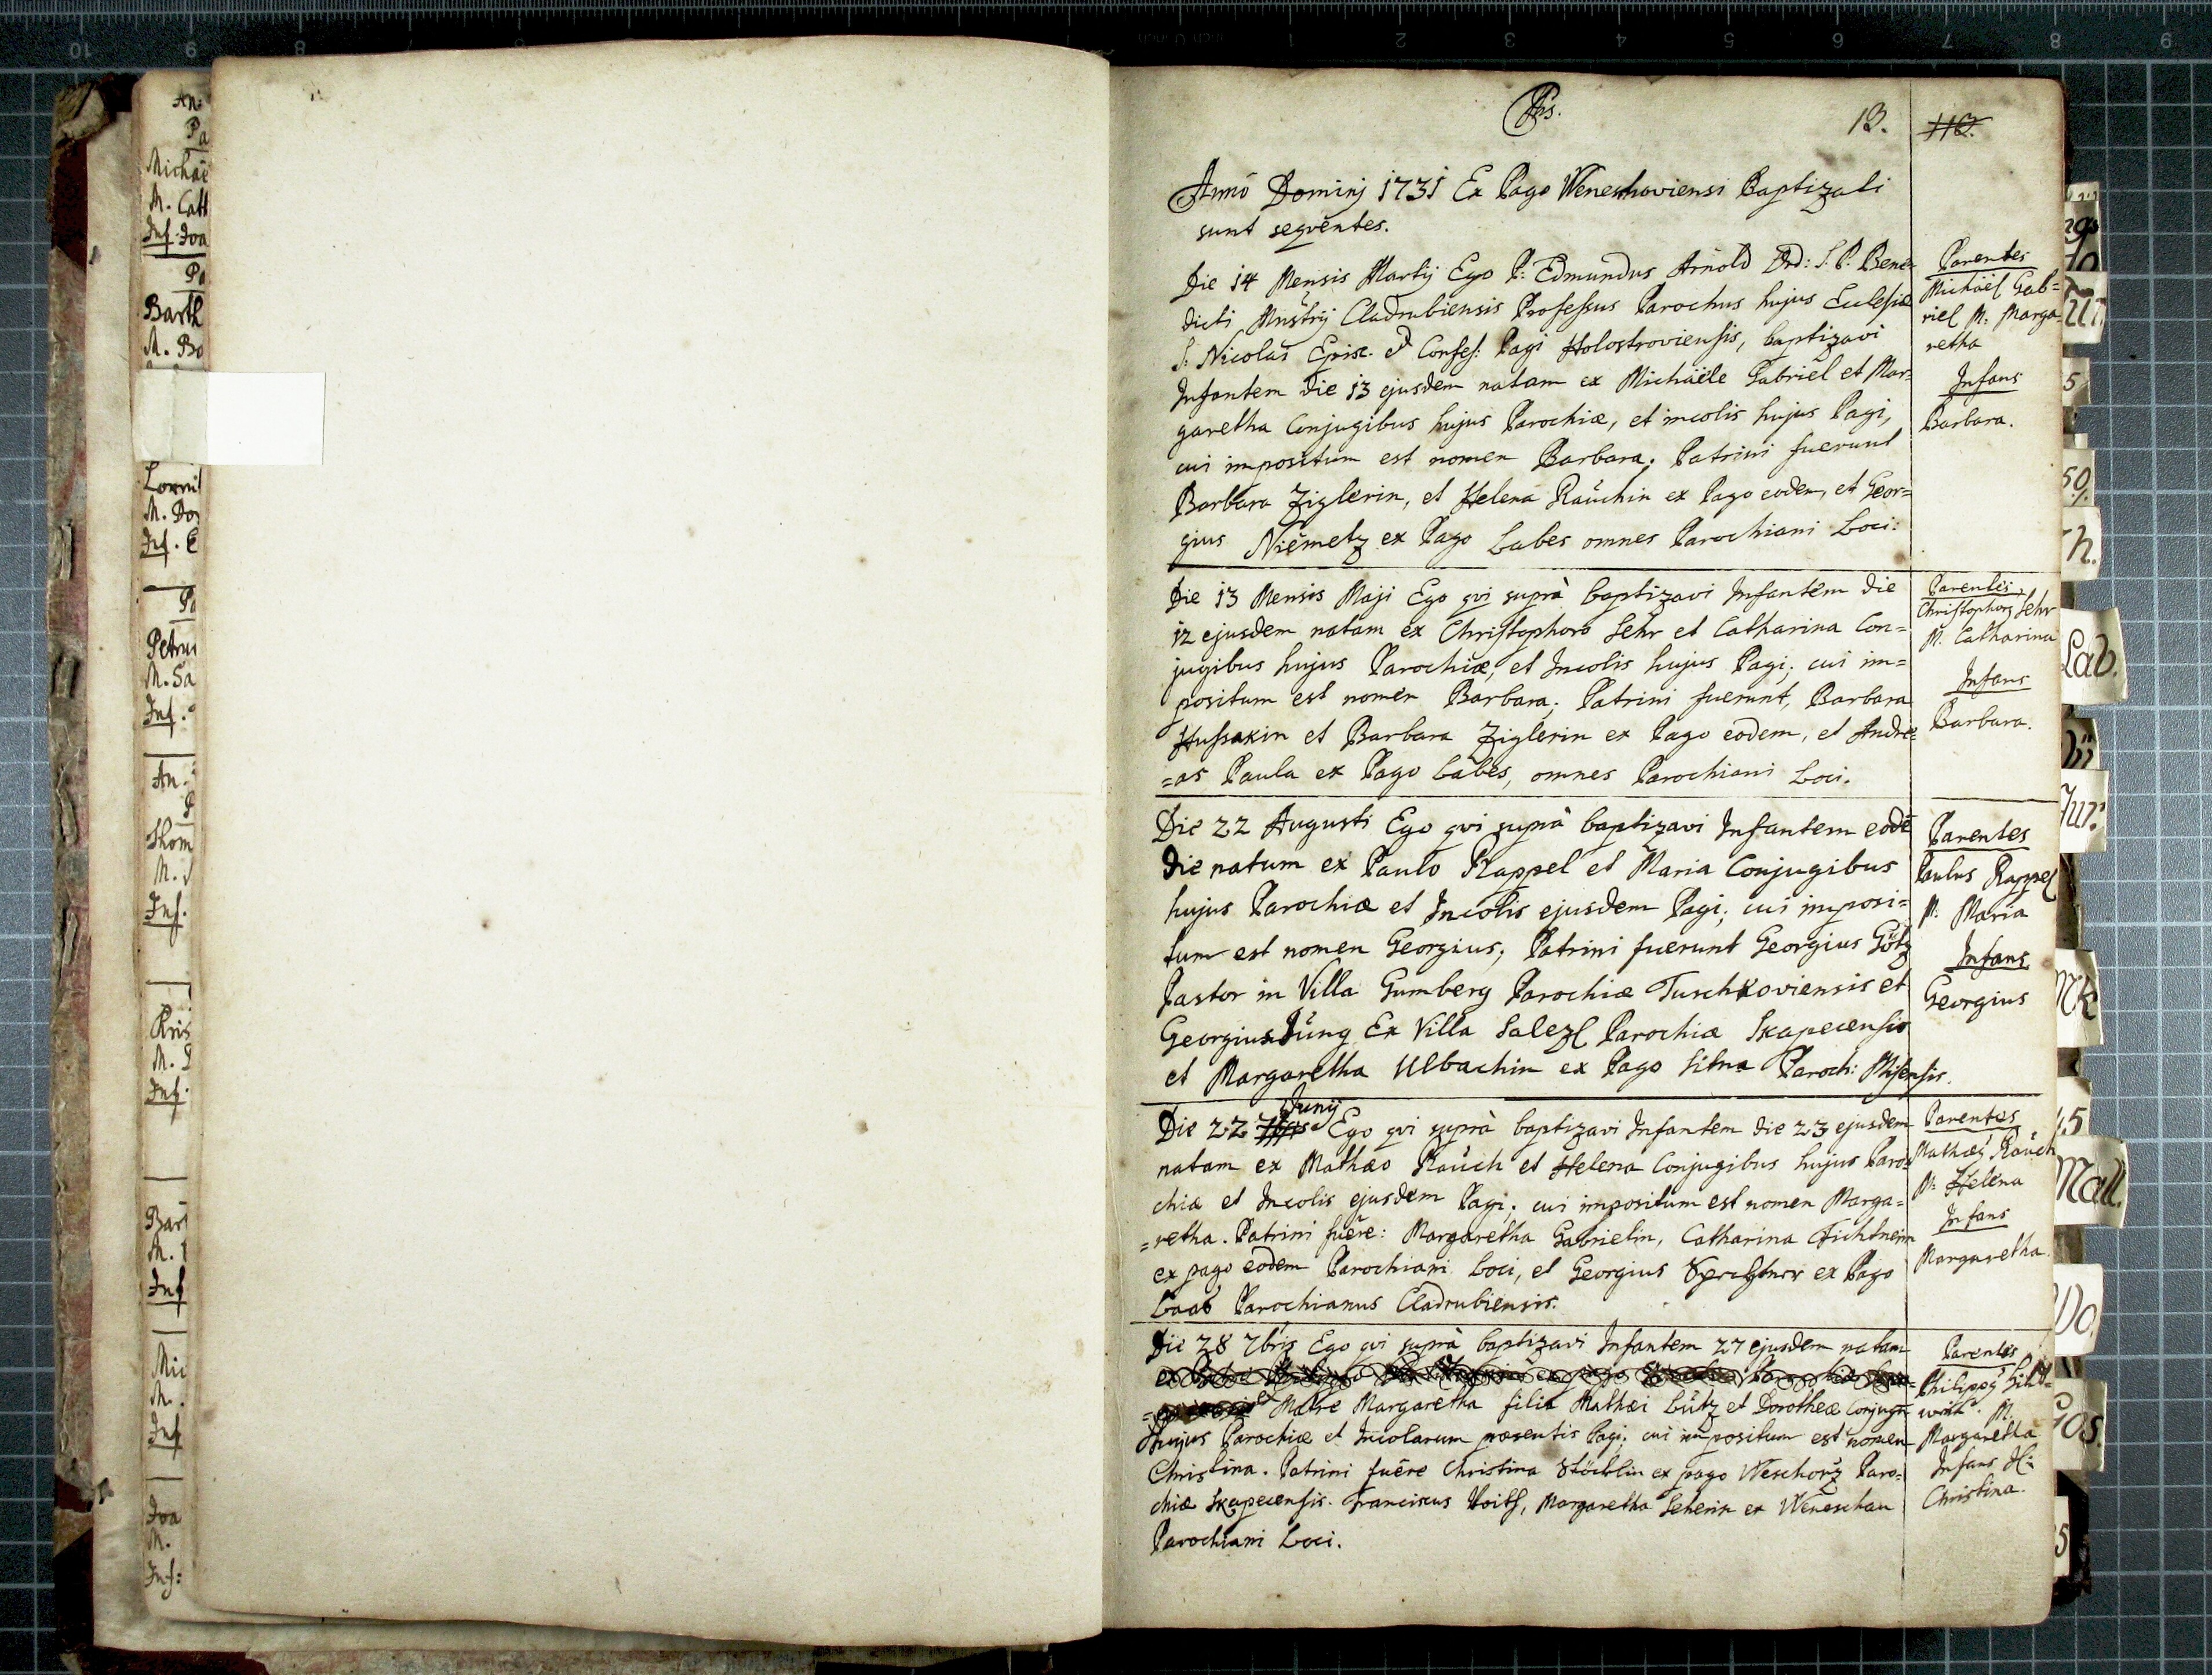 An:
Pa
Michäe
M. Cath
Inf. Joa
Pa
Barth
M. Bo
M. Do
Pa
Petrus
M. Sa
Inf.
An.
P
Thom
M.
Inf.
M.
Inf.
Bar
M.
Inf
Mic
M.
Inf
Joa
M.
Inf:
13.
113.
Anno Dominj 1731 Ex Pago Weneschoviensi Baptizati
sunt seqventes.
Die 14 Mensis Martij Ego P: Edmundus Arnold Ord: S. P. Bene-
dicti Mnstrij Cladrubiensis Professus Parochus hujus Ecclesiæ
S. Nicolai Episc. et Confes: Pagi Holostroviensis, baptizavi
Infantem die 13 ejusdem natam ex Michäele Gabriel et Mar=
garetha Conjugibus hujus Parochiæ, et incolis hujus Pagi,
cui impositum est nomen Barbara. Patrini fuerunt
Barbara Ziglerin, et Helena Raüchin ex Pago eodem, et Geor=
gius Niemetz ex Pago Labes omnes Parochiani Loci.
Parentes
Michäel Gab=
riel M. Marga=
retha
Infans
Barbara.
Die 13 Mensis Maji Ego qvi suprà baptizavi Infantem die
12 ejusdem natam ex Christophoro Sehr et Catharina Con=
jugibus hujus Parochiæ, et Incolis hujus Pagi; cui im=
positum est nomen Barbara; Patrini fuerunt, Barbara
Hussakin et Barbara Ziglerin ex Pago eodem, et Andre=
=as Paula ex Pago Labes, omnes Parochiani Loci.
Parentes
Christophorg Sehr
M. Catharina
Infans
Barbara.
Die 22 Augusti Ego qvi suprà baptizavi Infantem eodē
die natum ex Paulo Rappel et Maria Conjugibus
hujus Parochiæ et Incolis ejusdem Pagi; cui imposi=
tum est nomen Georgius; Patrini fuerunt Georgius Götz
Pastor in Villa Gumberg Parochiæ Tuschkoviensis et
Georgius Jüng Ex Villa Salezl Parochiæ Skapecensis
et Margaretha Ulbachin ex Pago Sitna Paroch: Misensis.
Parentes
Paulus Rappel
M. Maria
Infans
Georgius
Junij
Die 22 Ego qvi suprà baptizavi Infantem die 23 ejusdem
natam ex Mathæo Raüch et Helena Conjugibus hujus Paro=
chiæ et Incolis ejusdem Pagi; cui impositum est nomen Marga=
=retha. Patrini fuêre: Margaretha Gabrielin, Catharina Fichtnerin
ex pago eodem Parochiani Loci, et Georgius ex Pago
Laab Parochianus Cladrubiensis.
Parentes
Mathæg Raüch
M: Helena
Infans
Margaretha.
Die 28 7bris Ego qvi suprà baptizavi Infantem 27 ejusdem natam
Matre Margaretha filia Mathæi Lütz et Dorotheæ Conjug:
Hujus Parochiæ et Incolarum præsentis Pagi; cui impositum est nomen
Christina. Patrini fuêre Christina Stöcklin ex pago Weschorz Paro=
chiæ Skapecensis. Franciscus Voitl, Margaretha Seherin ex Weneschau
Parochiani Loci.
Parentes
Philippg
M.
Margaretha
Infans
Christina.
50.
Th.
Lab.
Jur.
Mk
Mall.
Wo.
Gos.